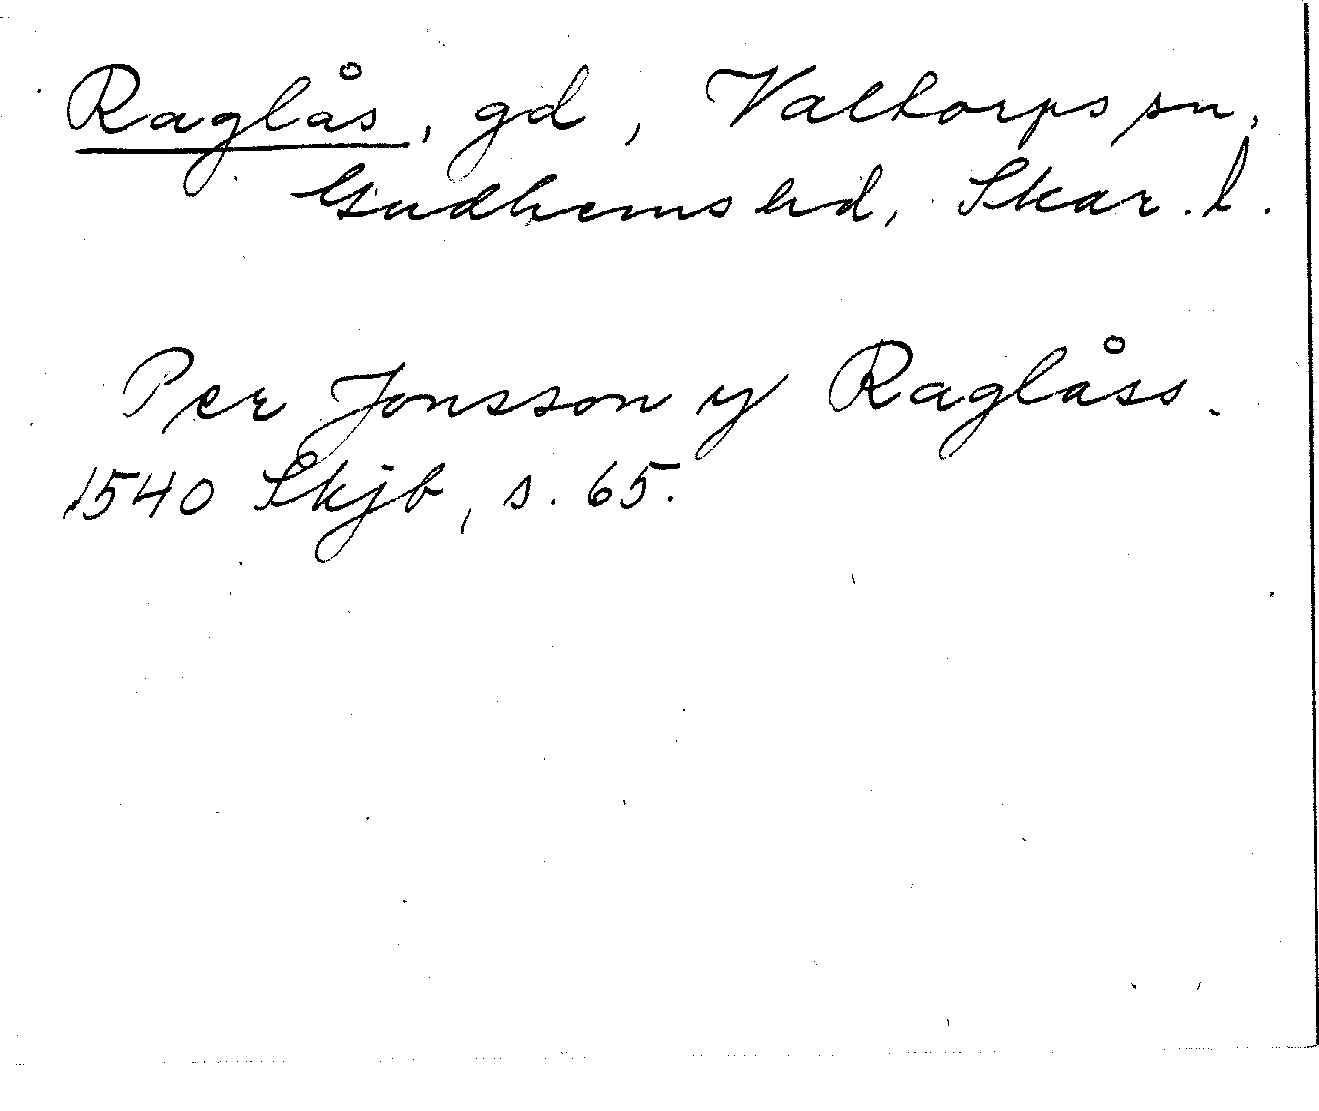 Raglås, gd, Valtorps sn,
Gudhems hd, Skar. l.
Per Jonsson y Raglåss.
1540 Åkjb, s. 65.